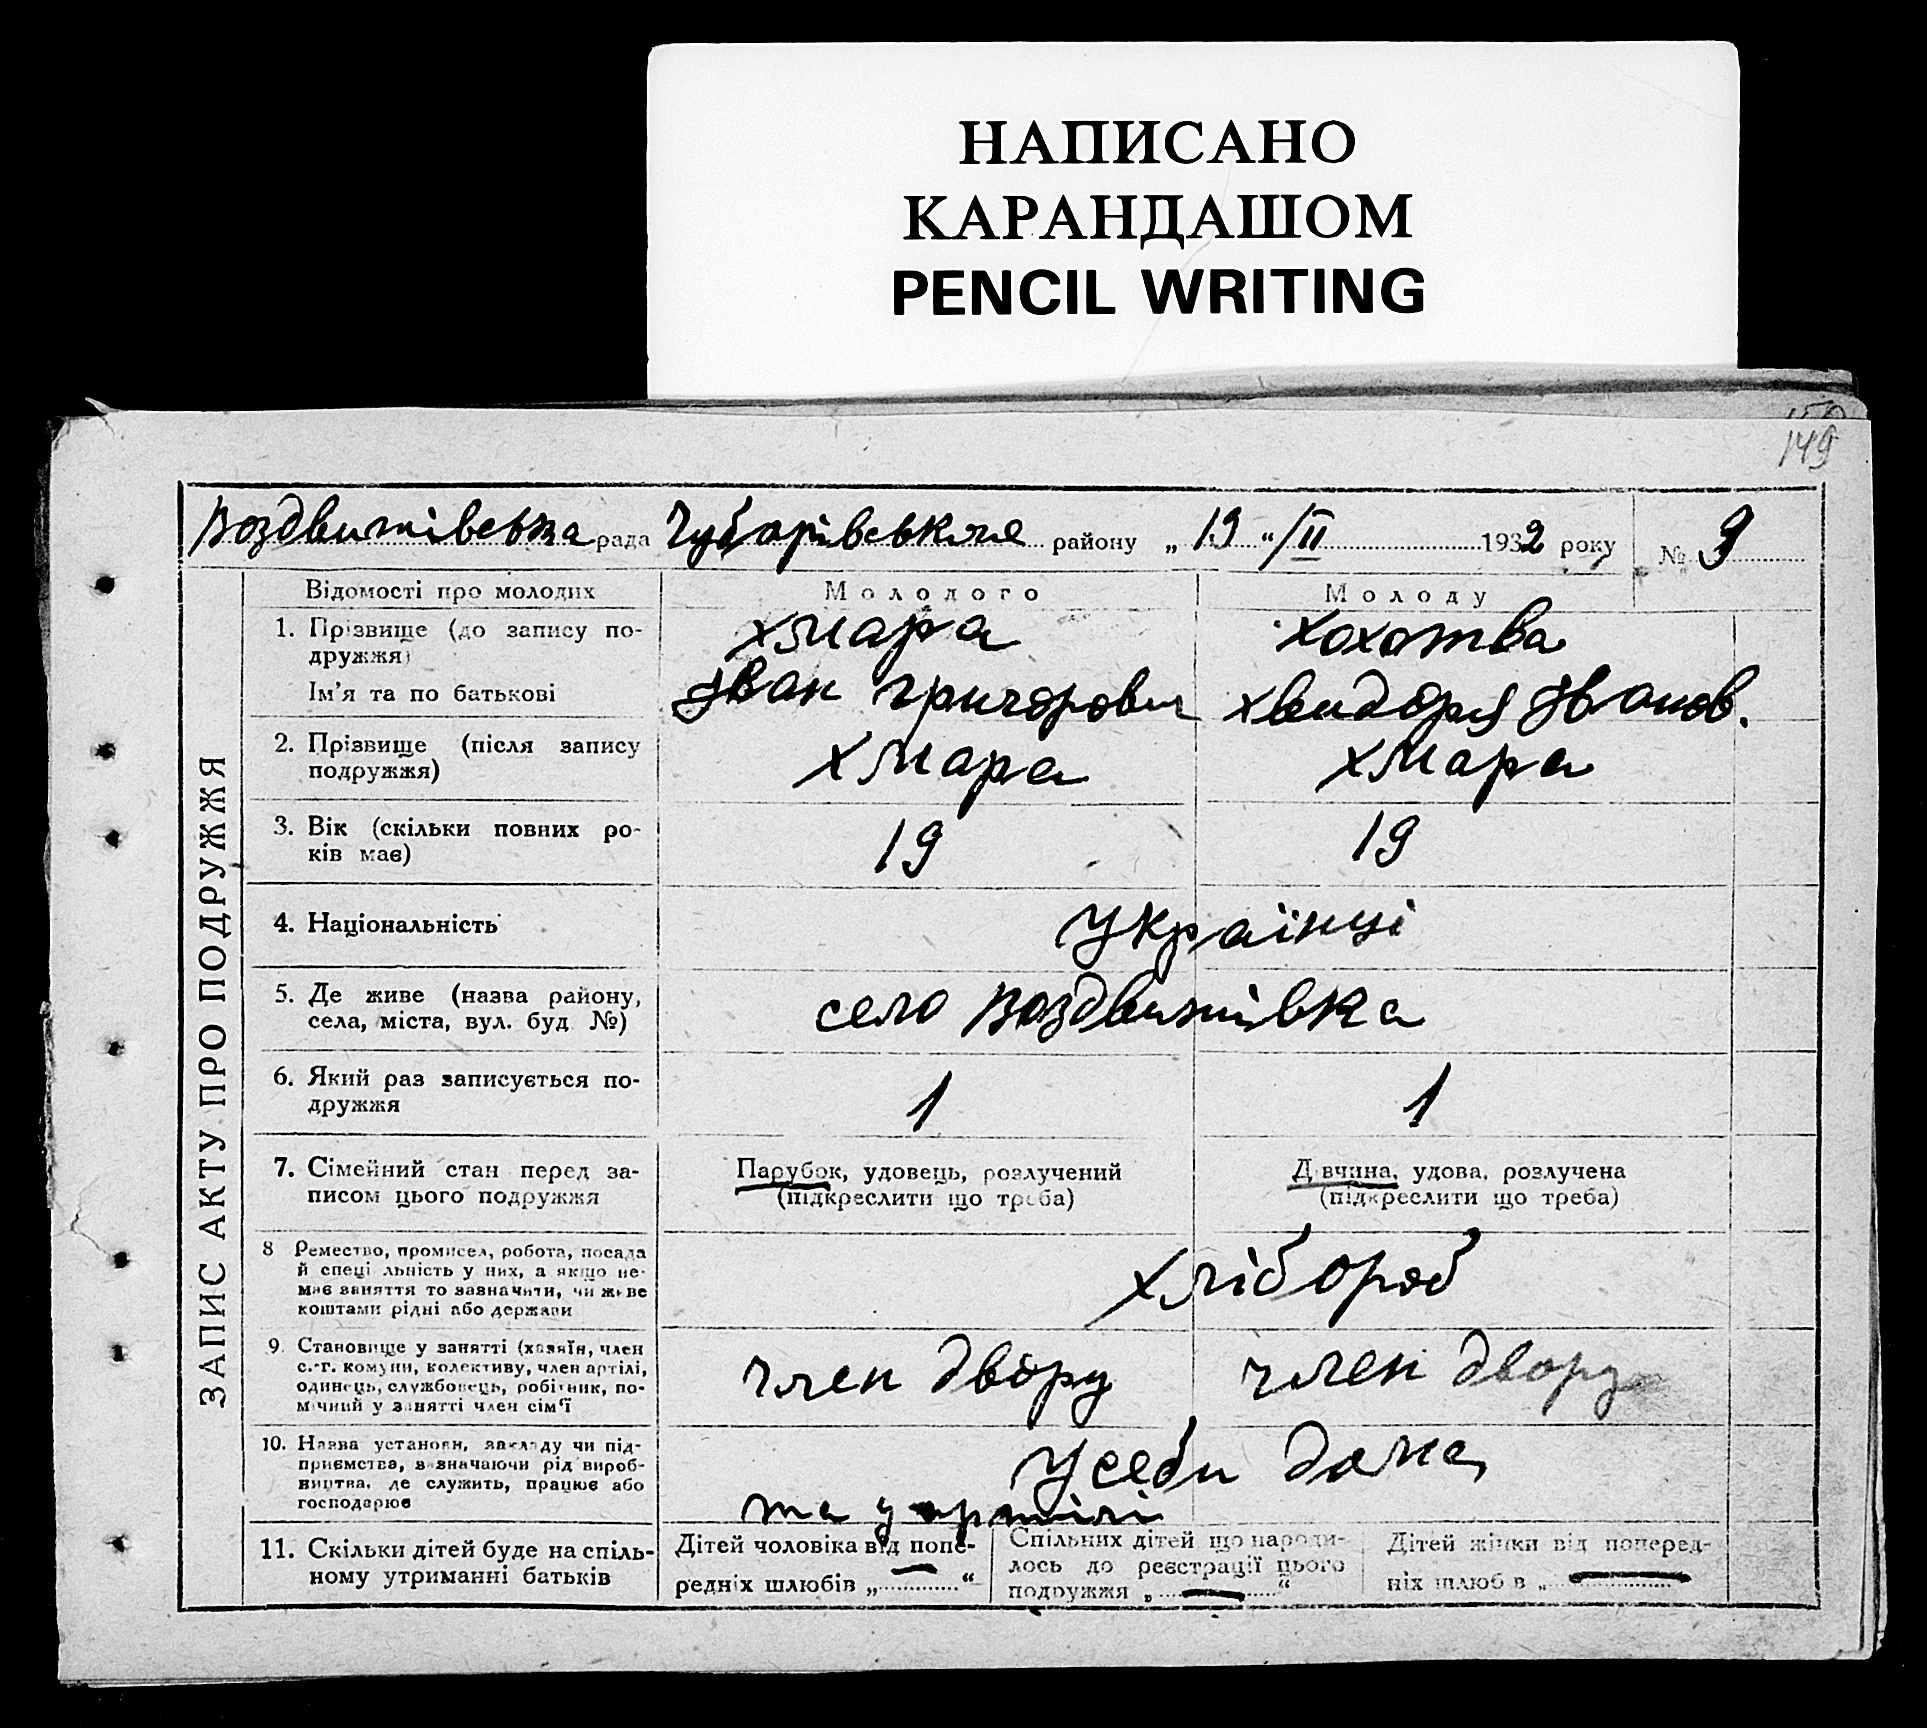 НАПИСАНО
КАРАНДАШОМ
PENCIL WRITING
149
Воздвижівська рада Чубарівське району „ 19 “ /II 1932 року № 9
ЗАПИС АКТУ ПРО ПОДРУЖЖЯ
Відомості про молодих Молодого Молоду
1. Прізвище (до запису по-
дружжя) Хмара Хохотва
Ім’я та по батькові Іван Григорович Хвендоря Іванов.
2. Прізвище (після запису
подружжя) Хмара Хмара
3. Вік (скільки повних ро-
ків має) 19 19
4. Національність Українці
5. Де живе (назва району,
села, міста, вул. буд №) село Воздвижівка
6. Який раз записується по-
дружжя 1 1
7. Сімейний стан перед за-
писом цього подружжя
Парубок, удовець, розлучений
(підкреслити що треба)
Дівчина, удова, розлучена
(підкреслити що треба)
8 Ремество, промисел, робота, посада
й спеціальність у них, а якщо не-
має заняття то зазначити, чи живе
коштами рідні або держави
хлібороб
9. Становище у занятті (хазяїн, член
с.-г. комуни, колективу, член артілі,
одинець, службовець, робітник, по-
мічний у занятті член сім’ї
член двору член двору
10. Назва установи, закладу чи під-
приємства, зазначаючи рід вироб-
ництва, де служить, працює або
господарює
У себи дома
та у артілі
11. Скільки дітей буде на спіль-
ному утриманні батьків
Дітей чоловіка від попе-
редніх шлюбів „ — “
Спільних дітей що народи-
лось до реєстрації цього
подружжя „ — “
Дітей жінки від поперед-
ніх шлюбів „ —